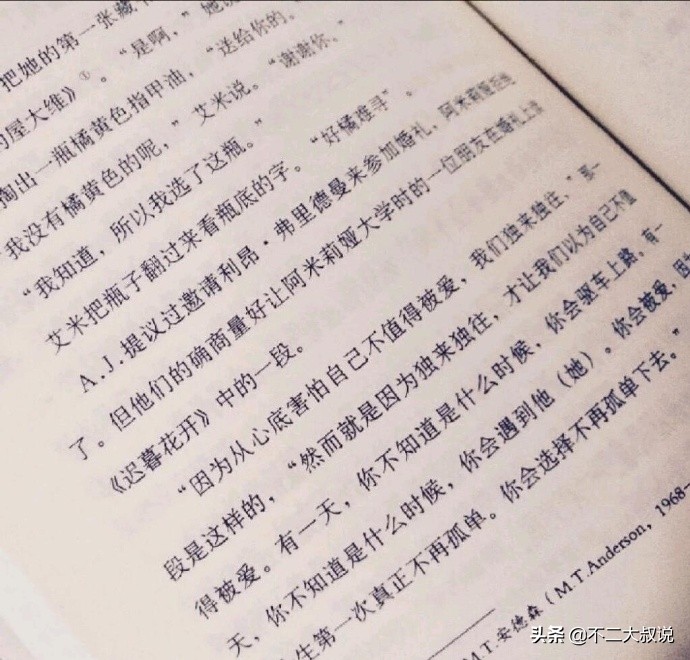 把她的第一张藏书
的屋大维》①。“是啊，”她说
掏出一瓶橘黄色指甲油，“送给你的。
我没有橘黄色的呢，”艾米说。“谢谢你。”
“我知道，所以我选了这瓶。”
艾米把瓶子翻过来看瓶底的字。“好橘难寻”。
A.J.提议过邀请利昂·弗里德曼来参加婚礼，阿米莉娅拒绝
了。但他们的确商量好让阿米莉娅大学时的一位朋友在婚礼上读
《迟暮花开》中的一段。
“因为从心底害怕自己不值得被爱，我们独来独往，”那一
段是这样的，“然而就是因为独来独往，才让我们以为自己不值
得被爱。有一天，你不知道是什么时候，你会驱车上路。有一
天，你不知道是什么时候，你会遇到他（她）。你会被爱，因为
生第一次真正不再孤单。你会选择不再孤单下去。”
M.T.安德森（M.T.Anderson，1968—
头条 @不二大叔说